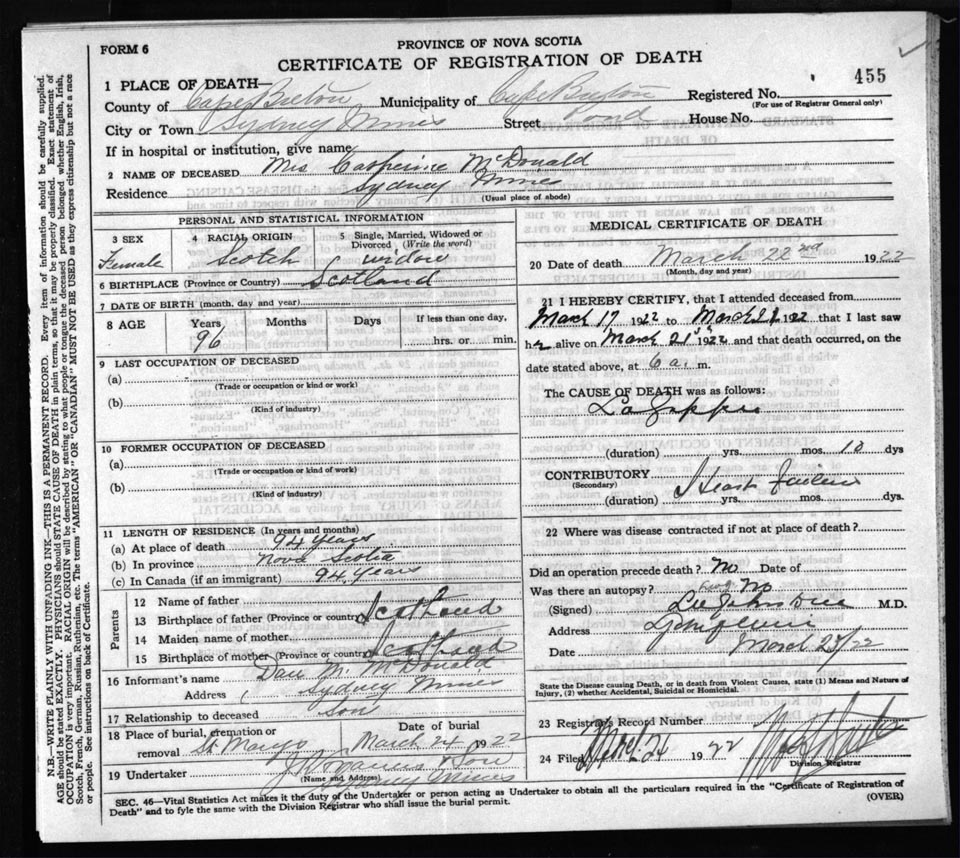 FORM 6
PROVINCE OF NOVA SCOTIA
CERTIFICATE OF REGISTRATION OF DEATH
455
1 PLACE OF DEATH—
County of Cape Breton Municipality of Cape Breton Registered No.
(For use of Registrar General only)
City or Town Sydney Mines Street House No.
If in hospital or institution, give name
2 NAME OF DECEASED Mrs Catherine McDonald
Residence Sydney Mines
(Usual place of abode)
PERSONAL AND STATISTICAL INFORMATION
3 SEX Female
4 RACIAL ORIGIN Scotch
5 Single, Married, Widowed or Divorced (Write the word) widow
6 BIRTHPLACE (Province or Country) Scotland
7 DATE OF BIRTH (month, day and year)
8 AGE Years Months Days If less than one day,
96 hrs. or min.
9 LAST OCCUPATION OF DECEASED
(a)
(Trade or occupation or kind or work)
(b)
(Kind of industry)
10 FORMER OCCUPATION OF DECEASED
(a)
(Trade or occupation or kind of work)
(b)
(Kind of industry)
11 LENGTH OF RESIDENCE (In years and months)
(a) At place of death 94 years
(b) In province Nova Scotia
(c) In Canada (if an immigrant) 94 years
Parents
12 Name of father
13 Birthplace of father (Province or country) Scotland
14 Maiden name of mother
15 Birthplace of mother (Province or country) Scotland
16 Informant's name Dan McDonald
Address Sydney Mines
17 Relationship to deceased Son
18 Place of burial, cremation or removal Date of burial
March 24 1922
19 Undertaker
(Name and Address)
Sydney Mines
MEDICAL CERTIFICATE OF DEATH
20 Date of death March 22nd 1922
(Month, day and year)
21 I HEREBY CERTIFY, that I attended deceased from
March 17 1922 to March 1922 that I last saw
her alive on March 21st 1922 and that death occurred, on the
date stated above, at 6 a. m.
The CAUSE OF DEATH was as follows:
La Grippe
(duration) yrs. mos. 10 dys
CONTRIBUTORY Heart Failure
(Secondary)
(duration) yrs. mos. dys.
22 Where was disease contracted if not at place of death?
Did an operation precede death? No Date of
Was there an autopsy? No
(Signed) M.D.
Address
Date March /22
State the Disease causing Death, or in death from Violent Causes, state (1) Means and Nature of
Injury, (2) whether Accidental, Suicidal or Homicidal.
23 Registrar's Record Number
24 Filed March 24 1922
Division Registrar
SEC. 46—Vital Statistics Act makes it the duty of the Undertaker or person acting as Undertaker to obtain all the particulars required in the "Certificate of Registration of
Death" and to fyle the same with the Division Registrar who shall issue the burial permit.
(OVER)
N.B.—WRITE PLAINLY WITH UNFADING INK—THIS IS A PERMANENT RECORD. Every item of information should be carefully supplied.
AGE should be stated EXACTLY. PHYSICIANS should STATE CAUSE OF DEATH in plain terms, so that it may be properly classified. Exact statement of
OCCUPATION is very important. RACIAL ORIGIN will be described by stating to what people or tongue the deceased person belonged whether English, Irish,
Scotch, French, German, Russian, Ruthenian, etc. The terms "AMERICAN" OR "CANADIAN" MUST NOT BE USED as they express citizenship but not a race
or people. See instructions on back of Certificate.